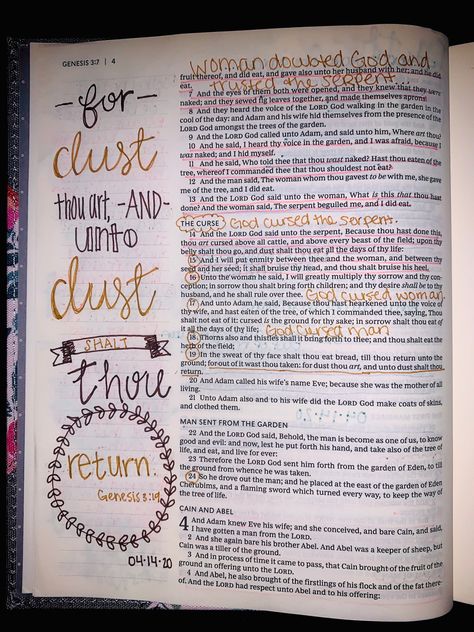 GENESIS 3:7 | 4
-for-
dust
thou art, -AND-
unto
dust
SHALT
thou
return.
Genesis 3:19
04-14-20
woman doubted God and
trusted the serpent...
fruit thereof, and did eat, and gave also unto her husband with her; and he did
eat.
7 And the eyes of them both were opened, and they knew that they were
naked; and they sewed fig leaves together, and made themselves aprons.
8 And they heard the voice of the LORD God walking in the garden in the
cool of the day: and Adam and his wife hid themselves from the presence of the
LORD God amongst the trees of the garden.
9 And the LORD God called unto Adam, and said unto him, Where art thou?
10 And he said, I heard thy voice in the garden, and I was afraid, because I
was naked; and I hid myself.
11 And he said, Who told thee that thou wast naked? Hast thou eaten of the
tree, whereof I commanded thee that thou shouldest not eat?
12 And the man said, The woman whom thou gavest to be with me, she gave
me of the tree, and I did eat.
13 And the LORD God said unto the woman, What is this that thou hast
done? And the woman said, The serpent beguiled me, and I did eat.
THE CURSE God cursed the serpent.
14 And the LORD God said unto the serpent, Because thou hast done this,
thou art cursed above all cattle, and above every beast of the field; upon thy
belly shalt thou go, and dust shalt thou eat all the days of thy life:
15 And I will put enmity between thee and the woman, and between thy
seed and her seed; it shall bruise thy head, and thou shalt bruise his heel.
16 Unto the woman he said, I will greatly multiply thy sorrow and thy con-
ception; in sorrow thou shalt bring forth children; and thy desire shall be to thy
husband, and he shall rule over thee. God cursed woman
17 And unto Adam he said, Because thou hast hearkened unto the voice of
thy wife, and hast eaten of the tree, of which I commanded thee, saying, Thou
shalt not eat of it: cursed is the ground for thy sake; in sorrow shalt thou eat of
it all the days of thy life; God cursed man
18 Thorns also and thistles shall it bring forth to thee; and thou shalt eat the
herb of the field;
19 In the sweat of thy face shalt thou eat bread, till thou return unto the
ground; for out of it wast thou taken: for dust thou art, and unto dust shalt thou
return.
20 And Adam called his wife's name Eve; because she was the mother of all
living.
21 Unto Adam also and to his wife did the LORD God make coats of skins,
and clothed them.
MAN SENT FROM THE GARDEN
22 And the LORD God said, Behold, the man is become as one of us, to know
good and evil: and now, lest he put forth his hand, and take also of the tree of
life, and eat, and live for ever:
23 Therefore the LORD God sent him forth from the garden of Eden, to till
the ground from whence he was taken.
24 So he drove out the man; and he placed at the east of the garden of Eden
Cherubims, and a flaming sword which turned every way, to keep the way of
the tree of life.
CAIN AND ABEL
4 And Adam knew Eve his wife; and she conceived, and bare Cain, and said,
I have gotten a man from the LORD.
2 And she again bare his brother Abel. And Abel was a keeper of sheep, but
Cain was a tiller of the ground.
3 And in process of time it came to pass, that Cain brought of the fruit of the
ground an offering unto the LORD.
4 And Abel, he also brought of the firstlings of his flock and of the fat there-
of. And the LORD had respect unto Abel and to his offering: